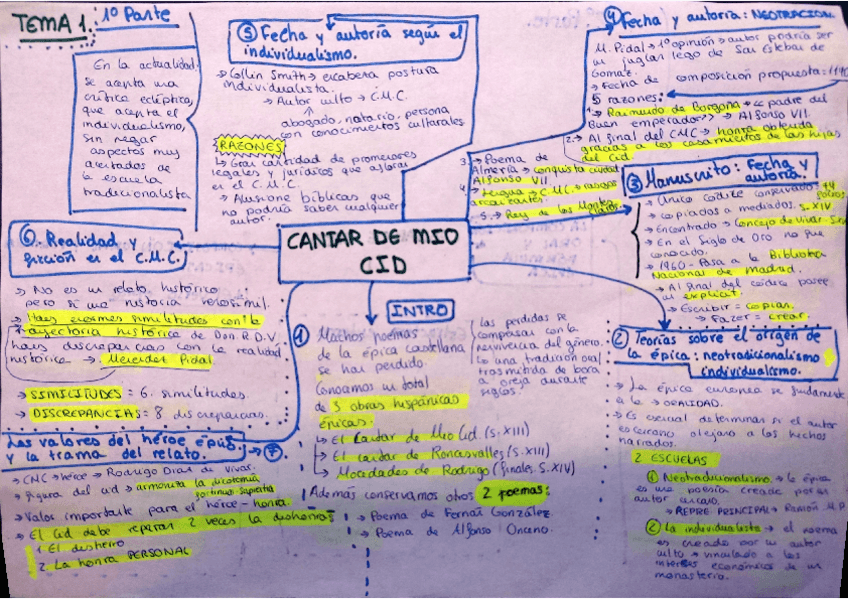 TEMA 1.
1º Parte
En la actualidad
se acepta una
crítica ecléptica,
que acepta el
individualismo,
sin negar
aspectos muy
acertados de
la escuela
tradicionalista
⑤ Fecha y autoría según el
individualismo.
→ Collin Smith → encabeza postura
individualista.
→ Autor culto → C.M.C.
abogado, notario, persona
con conocimientos culturales.
RAZONES
→ Gran cantidad de
legales y jurídicos que
en el C.M.C.
→ Alusione bíblicas que
no podría saber cualquier
autor.
④ Fecha y autoría: NEOTRACION
M. Pidal → 1º opinión → autor podría ser
un juglar lego de San Esteban de
Gormaz.
→ Fecha de composición propuesta: 1140
5 razones:
1. → Raimundo de Borgoña → "padre del
Buen emperador" → Alfonso VII.
2. → Al final del CMC → honra obtenida
gracias a los casamientos de las hijas
del Cid.
3. → Poema de
Almería → conquista ciudad
Alfonso VII
4. → Lengua → C.M.C →
arcaizante.
5. → Rey de los Montes
③ Manuscrito: Fecha y
autoría.
→ Único códice conservado: 74
folios
→ copiados a mediados. S. XIV
→ Encontrado → Concejo de Vivar
→ En el Siglo de Oro no fue
conocido.
→ 1960 - Pasa a la Biblioteca
Nacional de Madrid.
→ Al final del códice posee
un explicit.
→ Escribir = copiar.
→ Fazer = crear.
CANTAR DE MIO
CID
⑥ Realidad y
ficción en el C.M.C.
→ No es un relato histórico
pero sí una historia verosímil.
→ Hay enormes similitudes con la
trayectoria histórica de Don R.D.V
hay discrepancias con la realidad
histórica → Menéndez Pidal
→ SIMILITUDES = 6. similitudes.
→ DISCREPANCIAS = 8 discrepancias.
INTRO
① Muchos poemas
de la épica castellana
se han perdido.
Conoamos un total
de 3 obras hispánicas
épicas.
→ El Cantar de Mio Cid. (S. XIII)
→ El cantar de Roncesvalles (S. XIII)
→ Mocedades de Rodrigo (finales S. XIV)
Las perdidas se
compensan con la
pervivencia del género.
Es una tradición oral
trasmitida de boca
a oreja durante
siglos.
Además conservamos otros 2 poemas:
→ Poema de Fernán González.
→ Poema de Alfonso Onceno.
② Teorías sobre el origen de
la épica: neotradicionalismo
individualismo.
→ La épica europea se fundamenta
en la → ORALIDAD.
→ Es esencial determinar si el autor
es cercano o lejano a los hechos
narrados.
2 ESCUELAS
① Neotradicionalismo → la épica
es una poesía creada por un
autor
→ REPRE PRINCIPAL → Ramón M.P
② La individualista → el poema
es creado por un autor
culto → vinculado a los
interses económicos de un
monasterio.
Los valores del héroe épico
y la trama del relato. → ⑦.
→ CMC → héroe → Rodrigo Díaz de Vivar.
→ Figura del Cid → armoniza la dicotomía
fortitudo sapientia
→ Valor importante para el héroe → honra
→ El Cid debe reparar 2 veces la deshonra:
1. El destierro
2. La honra PERSONAL